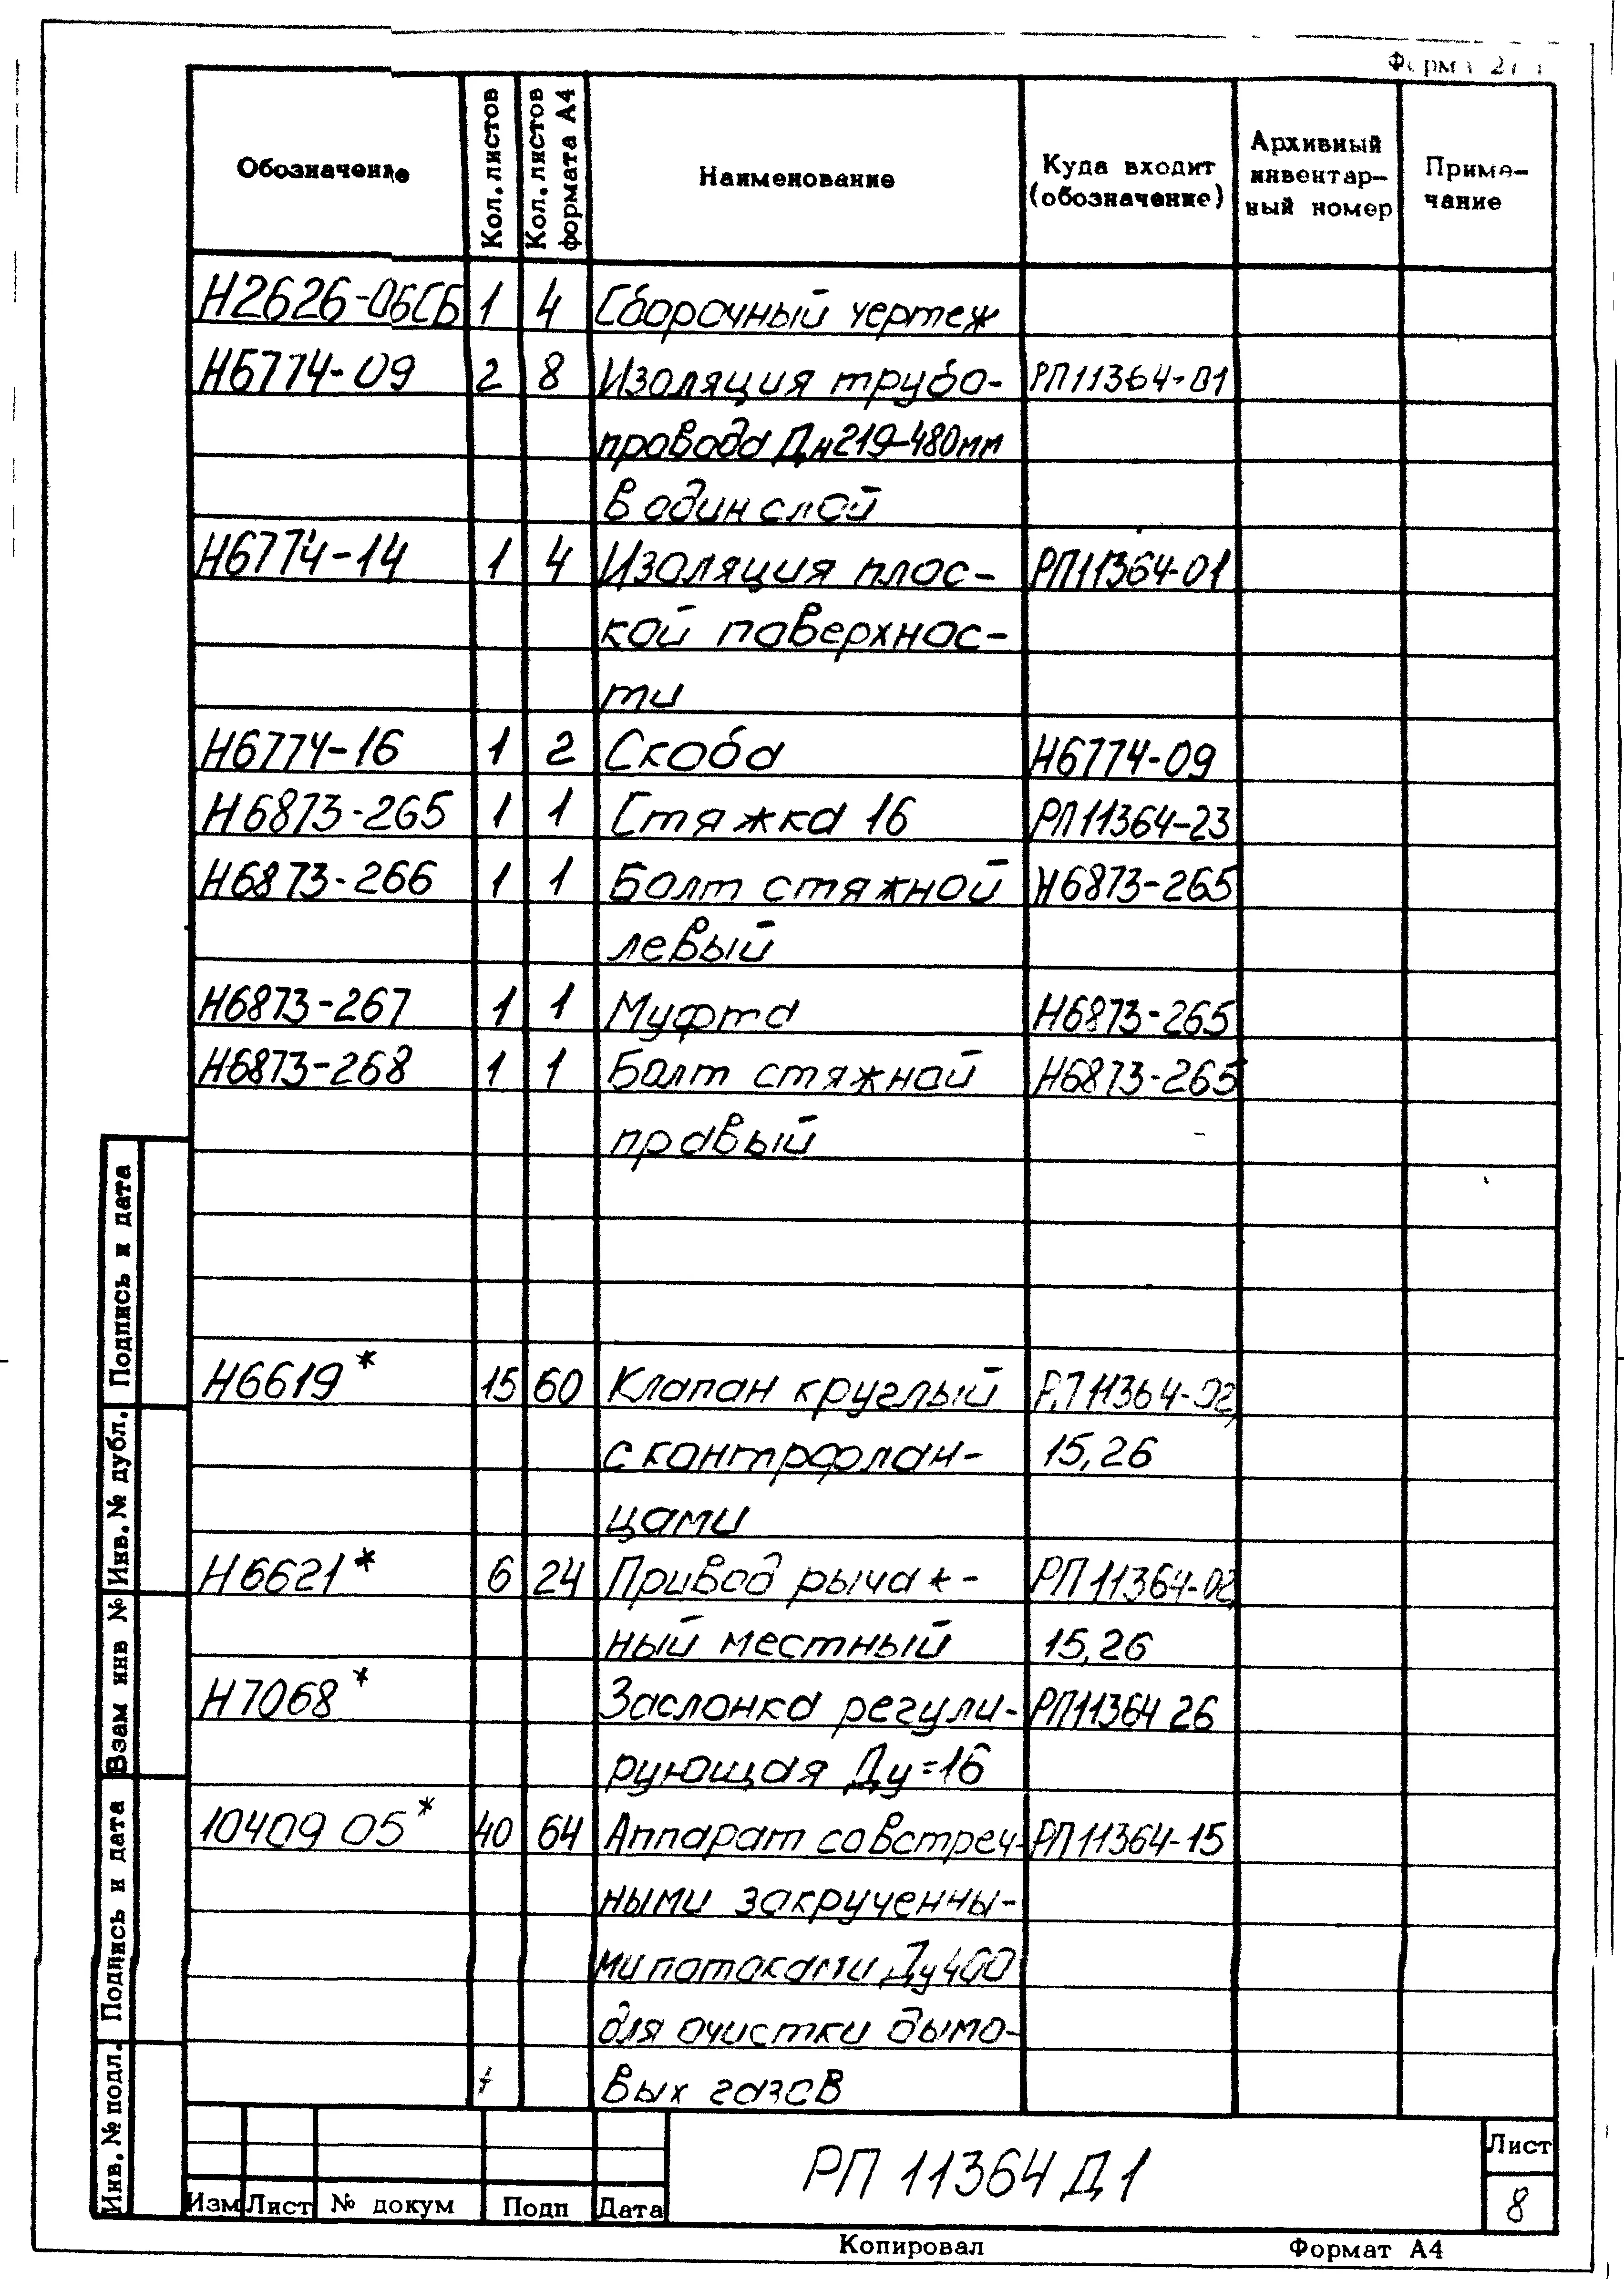 Обозначение Кол. листов Кол. листов формата А4 Наименование Куда входит (обозначение) Архивный инвентар- ный номер Приме- чание
Н2626-06СБ 1 4 Сборочный чертеж
Н6774-09 2 8 Изоляция трубо- РП11364-01
провода Дн219-480мм
в один слой
Н6774-14 1 4 Изоляция плос- РП11364-01
кой поверхнос-
ти
Н6774-16 1 2 Скоба Н6774-09
Н6873-265 1 1 Стяжка 16 РП11364-23
Н6873-266 1 1 Болт стяжной Н6873-265
левый
Н6873-267 1 1 Муфта Н6873-265
Н6873-268 1 1 Болт стяжной Н6873-265
правый
Н6619* 15 60 Клапан круглый РП11364-02,
с контрфлан- 15,26
цами
Н6621* 6 24 Привод рычаж- РП11364-02,
ный местный 15,26
Н7068* Заслонка регули- РП11364 26
рующая Ду=16
10409 05* 40 64 Аппарат со встреч- РП11364-15
ными закрученны-
ми потоками Ду400
для очистки дымо-
вых газов
Подпись и дата
Инв. № дубл.
Взам инв №
Подпись и дата
Инв. № подл.
Изм Лист № докум Подп Дата
РП 11364 Д1
Лист
8
Копировал Формат А4